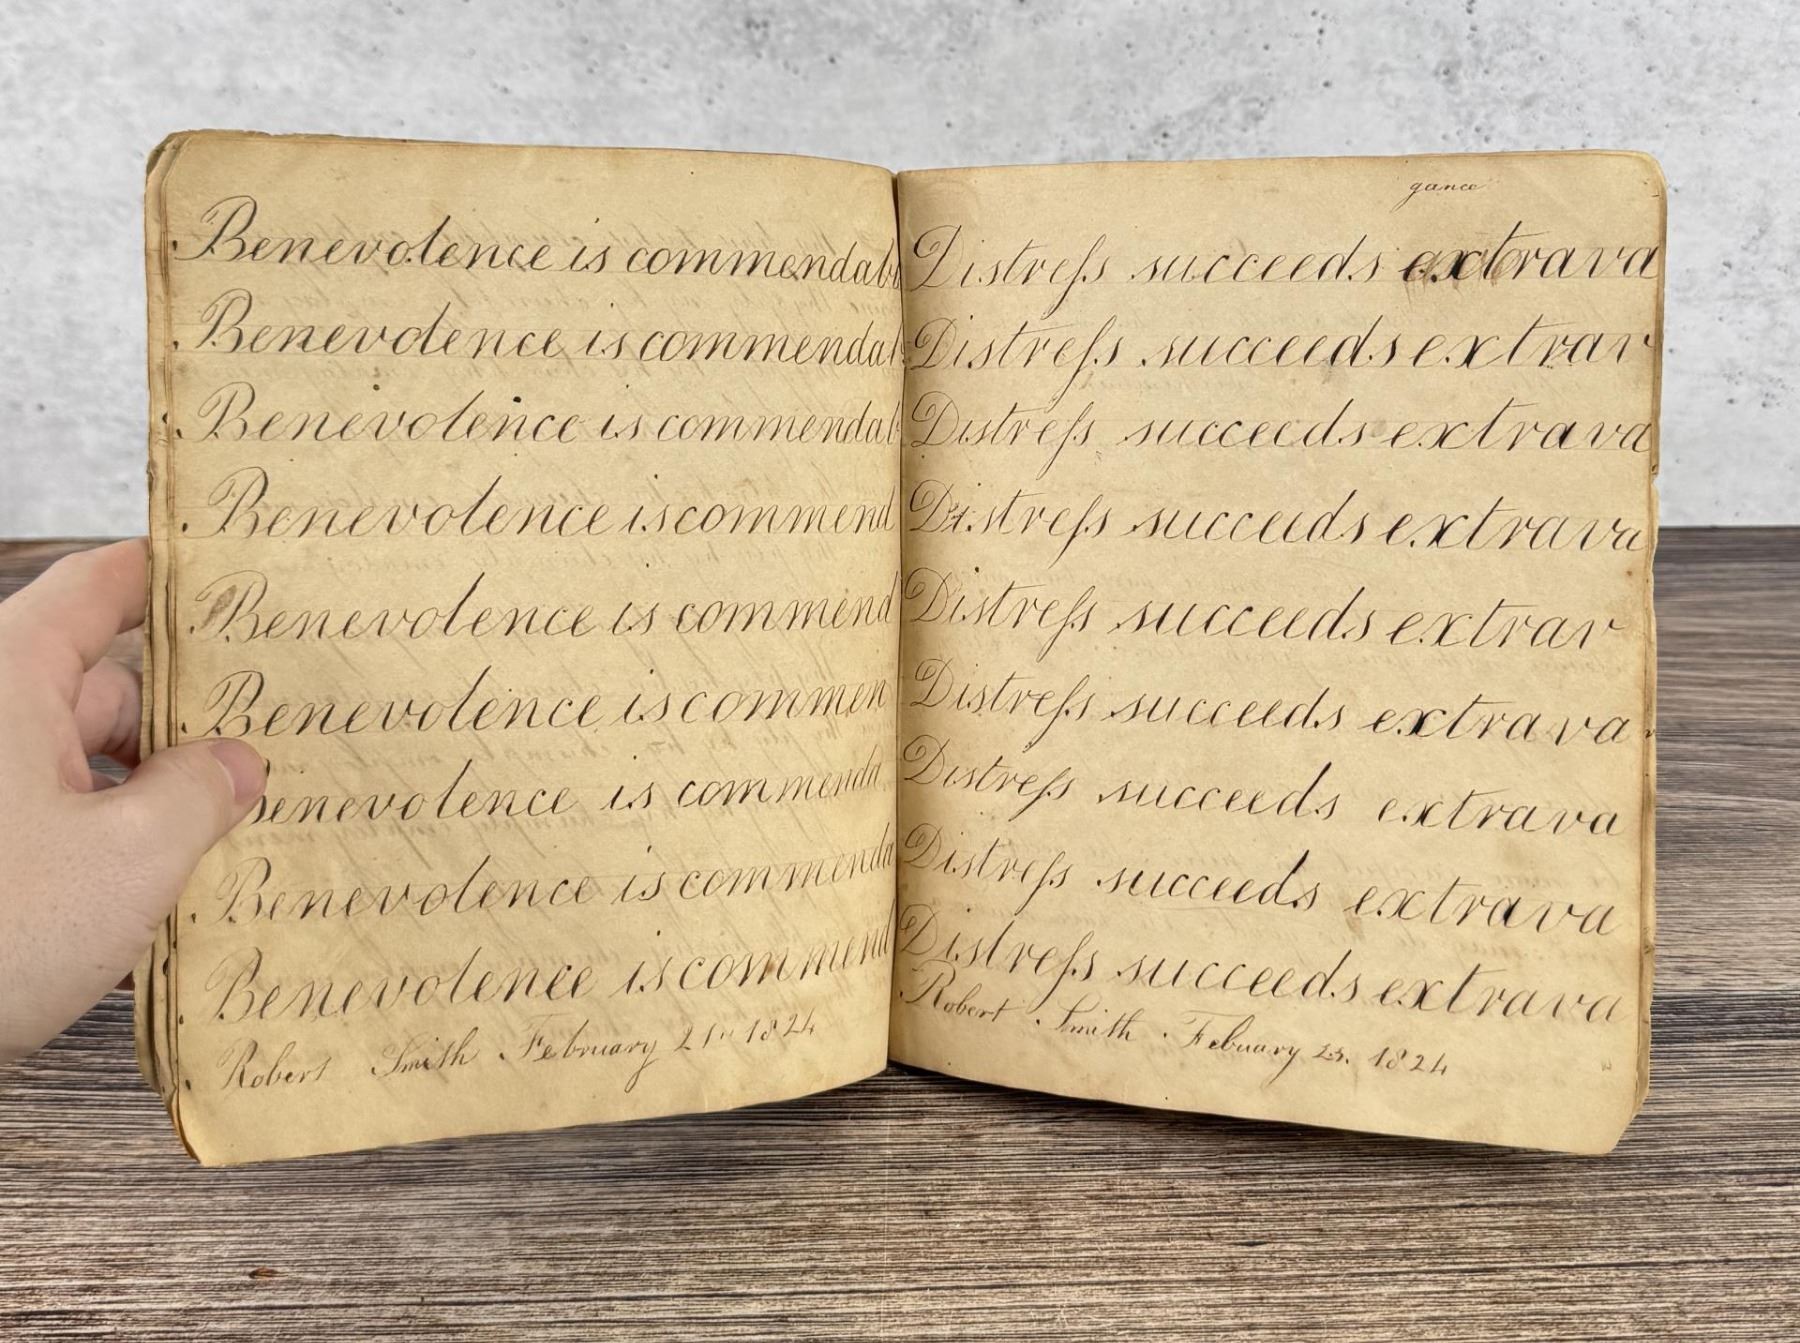 Benevolence is commendabl
Benevolence is commendab
Benevolence is commendab
Benevolence is commend
Benevolence is commend
Benevolence is commen
Benevolence is commenda
Benevolence is commenda
Benevolence is commend
Robert Smith February 21st 1824
gance
Distreſs succeeds extrava
Distreſs succeeds extrav
Distreſs succeeds extrava
Distreſs succeeds extrava
Distreſs succeeds extrav
Distreſs succeeds extrava
Distreſs succeeds extrava
Distreſs succeeds extrava
Distreſs succeeds extrava
Robert Smith Febuary 1824